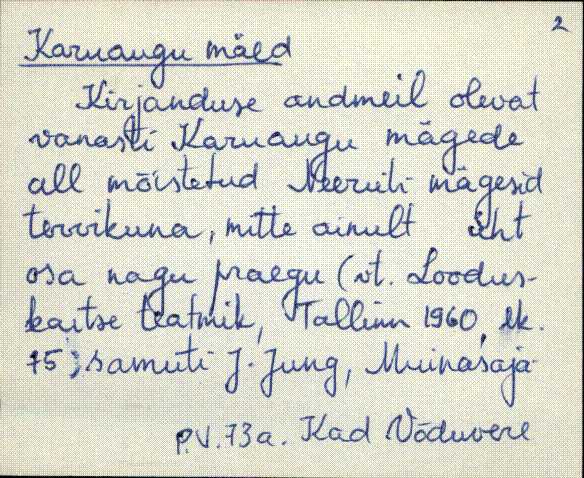 2
Karuaugu mäed
Kirjanduse andmeil olevat
vanasti Karuaugu mägede
all mõistetud Neeruti mägesid
tervikuna, mitte ainult üht
osa nagu praegu (vt. Loodus-
kaitse teatmik, Tallinn 1960, lk.
75; samuti J. Jung, Muinasaja-
P.V. 73a. Kad Võduvere